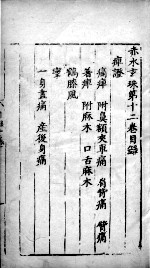 赤水玄珠第十二卷目錄
痺證
痛痺 附鼻額夾車痛 肩背痛 臂痛
著痺 附麻木 口舌麻木
鶴膝風
攣
一身盡痛 產後身痛